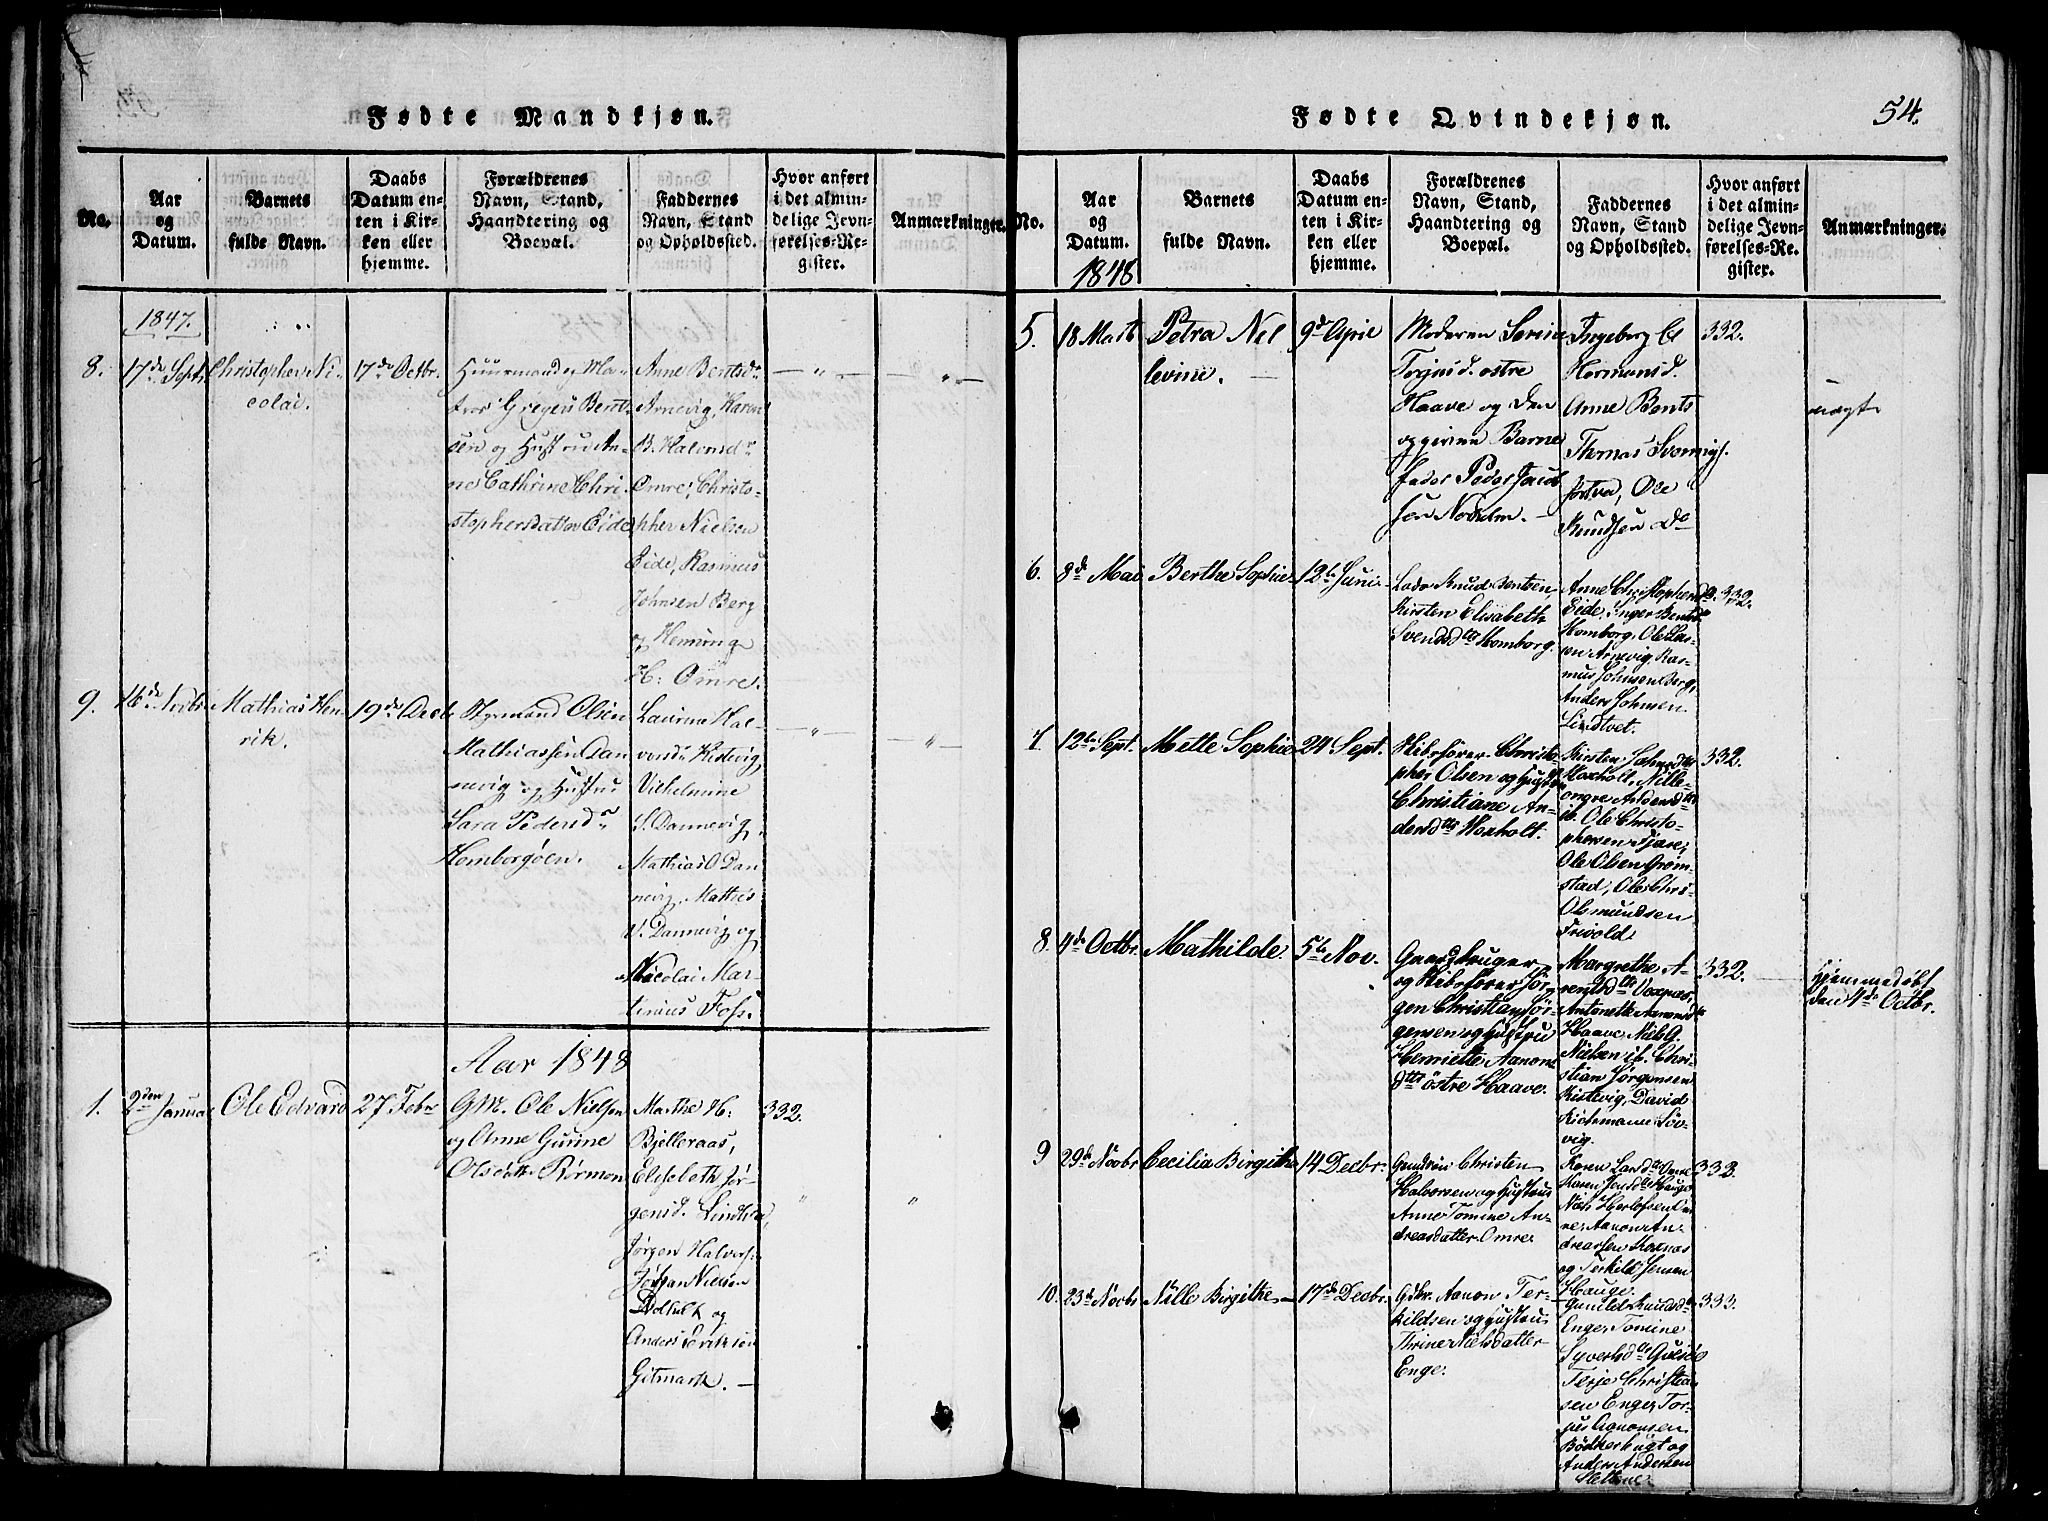 Fødte Mandkjøn.
No.
Aar
og
Datum.
Barnets
fulde Navn.
Daabs
Datum en-
ten i Kir-
ken eller
hjemme.
Forældrenes
Navn, Stand,
Haandtering og
Boepæl.
Faddernes
Navn, Stand
og Opholdssted.
Hvor anført
i det almin-
delige Jevn-
førelses-Re-
gister.
Anmærkninger.
1847.
8.
17de Sept.
Christopher Ni-
colai.
17de Octbr.
Huurmand og Ma-
tros Gregers Bent-
sen og Hustru An-
ne Cathrine Chri-
stophersdatter Eide
Anne Bentsdr
Arnevig, Karen
B. Halvorsdr
Omre, Christo-
pher Nielsen
Eide, Rasmus
Johnsen Berg
og Heming
H: Omre.
9.
16de Novbr
Mathias Hen-
rik.
19de Decbr
Styrmand Olsen
Mathiassen Dan
nevig og Hustru
Sara Pedersdr
Homborgøen.
Laurine Hal-
vorsdr Kistevig,
Vilhelmine
S. Dannevig,
Mathias O Dan
nevig, Mathis
V. Dannevig og
Nicolai Mar-
tinius Foss.
Aar 1848
1.
2den Januar
Ole Edvard
27 Febr
GM. Ole Nielsen
og Anne Gurine
Olsdttr Rørmon
Marthe H:
Bjelleraas,
Elisebeth Jør-
gensd. Lindtve,
Jørgen Halvors:
Johan Nielsen
og
Anders Eriksen
Gitmark.
332.
Fødte Qvindekjøn.
54.
No.
Aar
og
Datum.
1848
Barnets
fulde Navn.
Daabs
Datum en-
ten i Kir-
ken eller
hjemme.
Forældrenes
Navn, Stand,
Haandtering og
Boepæl.
Faddernes
Navn, Stand
og Opholdssted.
Hvor anført
i det almin-
delige Jevn-
førelses-Re-
gister.
Anmærkninger.
5.
18 Marts
Petra Nil
levine.
9de April
Moderen Serine
Torjusd. østre
Haave og den
opgivne Barne
fader Peder Jacob
sen
Ingeborg
Hermansd.
Anne Bents
Thomas Svennings.
Ole
Knudsen do
332.
uægte
6.
8de Mai
Berthe Sophie
12te Juni
Lods Knud Bentsen,
Kirsten Elisabeth
Svendsdtr Homborg.
Anne Christophersd
Eide, Inger Bentsd
Homborg, Ole Lar-
sen Arnevig, Ras-
mus Johnsen Berg,
Anders Johnsen
Lindtvet.
332.
7.
12te Sept.
Mette Sophie
24 Sept.
Skibsfører Christo-
pher Olsen og Hustru
Christiane An-
dersdtr Hoxholt.
Kirsten
Hoxholt, Nille
ongre Andersdtr
ib. Ole Christo-
phersen Tjøre,
Ole Olsen Grøm-
stad, Ole Chrs-
Olsmundsen
Frivold.
332.
8.
4de Octbr.
Mathilde.
5te Nov.
Gaardbruger
og Skibsfører Jør-
gen Christian Jør-
gensen og Hustru
Henriette Aanons
dttr østre Haave.
Margrethe A-
rentsdtr Vexnæs,
Antonette Aanonsd
Haave, Niels G.
Nielsen ib. Chri-
stian Jørgensen
Kistevig, David
Richsmann Søv-
vig.
332.
Hjemmedøbt
den 4de Octbr.
9
29de Novbr
Cecilia Birgithe
14 Decbr.
Christen
Halvorsen og Hustru
Anne Tomine An-
dreasdatter Omre
Karen Larsdtr Omre
Karen Jensdtr Hauge
Niels Herlofsen Om
re, Aanon An-
dreassen Hoxnæs
og Terkild Jensen
Hauge.
332.
10.
23de Novbr
Nille Birgithe
17de Decbr.
Gdbr. Aanon Ter-
kildsen og Hustru
Thrine Nielsdatter
Enge.
Gunild Knudsd
Enge, Tomine
Syvertsdtr
Terje Christian
sen Enge, Tor-
jus Aanonsen
Bødkerbugt og
Anders Andersen
Slettene
333.